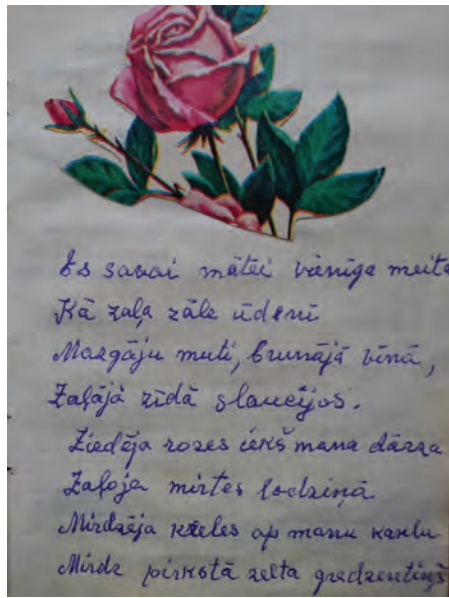 Es savai mātei vienīga meita
Kā zaļa zāle ūdenī
Mazgāju muti, brunājā vīnā,
Zaļājā zīdā slaucījos.
Ziedēja rozes iekš mana dārza
Zaļoja mirtes lodziņā
Mirdzēja ķēles ap manu kaklu
Mirdz pirkstā zelta gredzentiņš